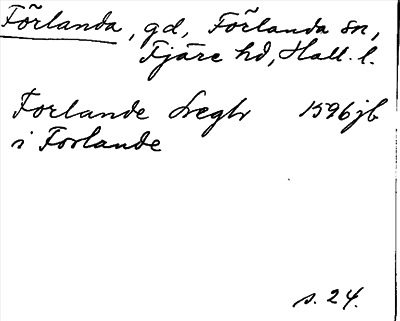 Förlanda, gd, Förlanda sn,
Fjäre hd, Hall. l.
Forlande Sregtr 1596 jb
i Forlande
s. 24.